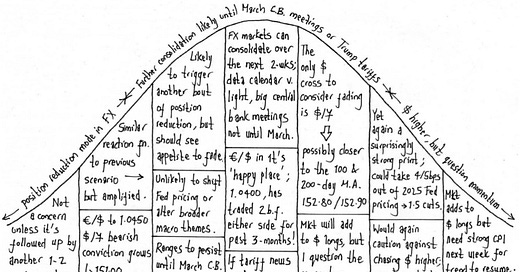 ← position reduction mode in FX → ← Further consolidation likely until March C.B. meetings or Trump tariffs → ← $ higher, but question momentum →
Not
a concern
unless it's
followed up by
another 1-2
Similar
reaction fn.
to previous
scenario →
but amplified.
€/$ to 1.0450
$/¥ bearish
conviction grows
Likely
to trigger
another bout
of position
reduction, but
should see
appetite to fade.
Unlikely to shift
Fed pricing or
alter broader
macro themes.
Ranges to persist
until March C.B.
FX markets can
consolidate over
the next 2-wks;
data calendar v.
light, big central
bank meetings
not until March.
€/$ in it's
'happy place';
1.0400, has
traded 2 b.f.
either side for
past 3-months!
If tariff news
The
only $
cross to
consider fading
is $/¥
⇩
possibly closer
to the 100 &
200-day M.A.
152.80/152.90
MKt will add
to $ longs, but
I question the
Yet
again a
surprisingly
strong print;
could take 4/5bps
out of 2025 Fed
pricing → 1.5 cuts.
Would again
caution against
chasing $ higher;
Mkt
adds to
$ longs but
need strong CPI
next week for
trend to resume